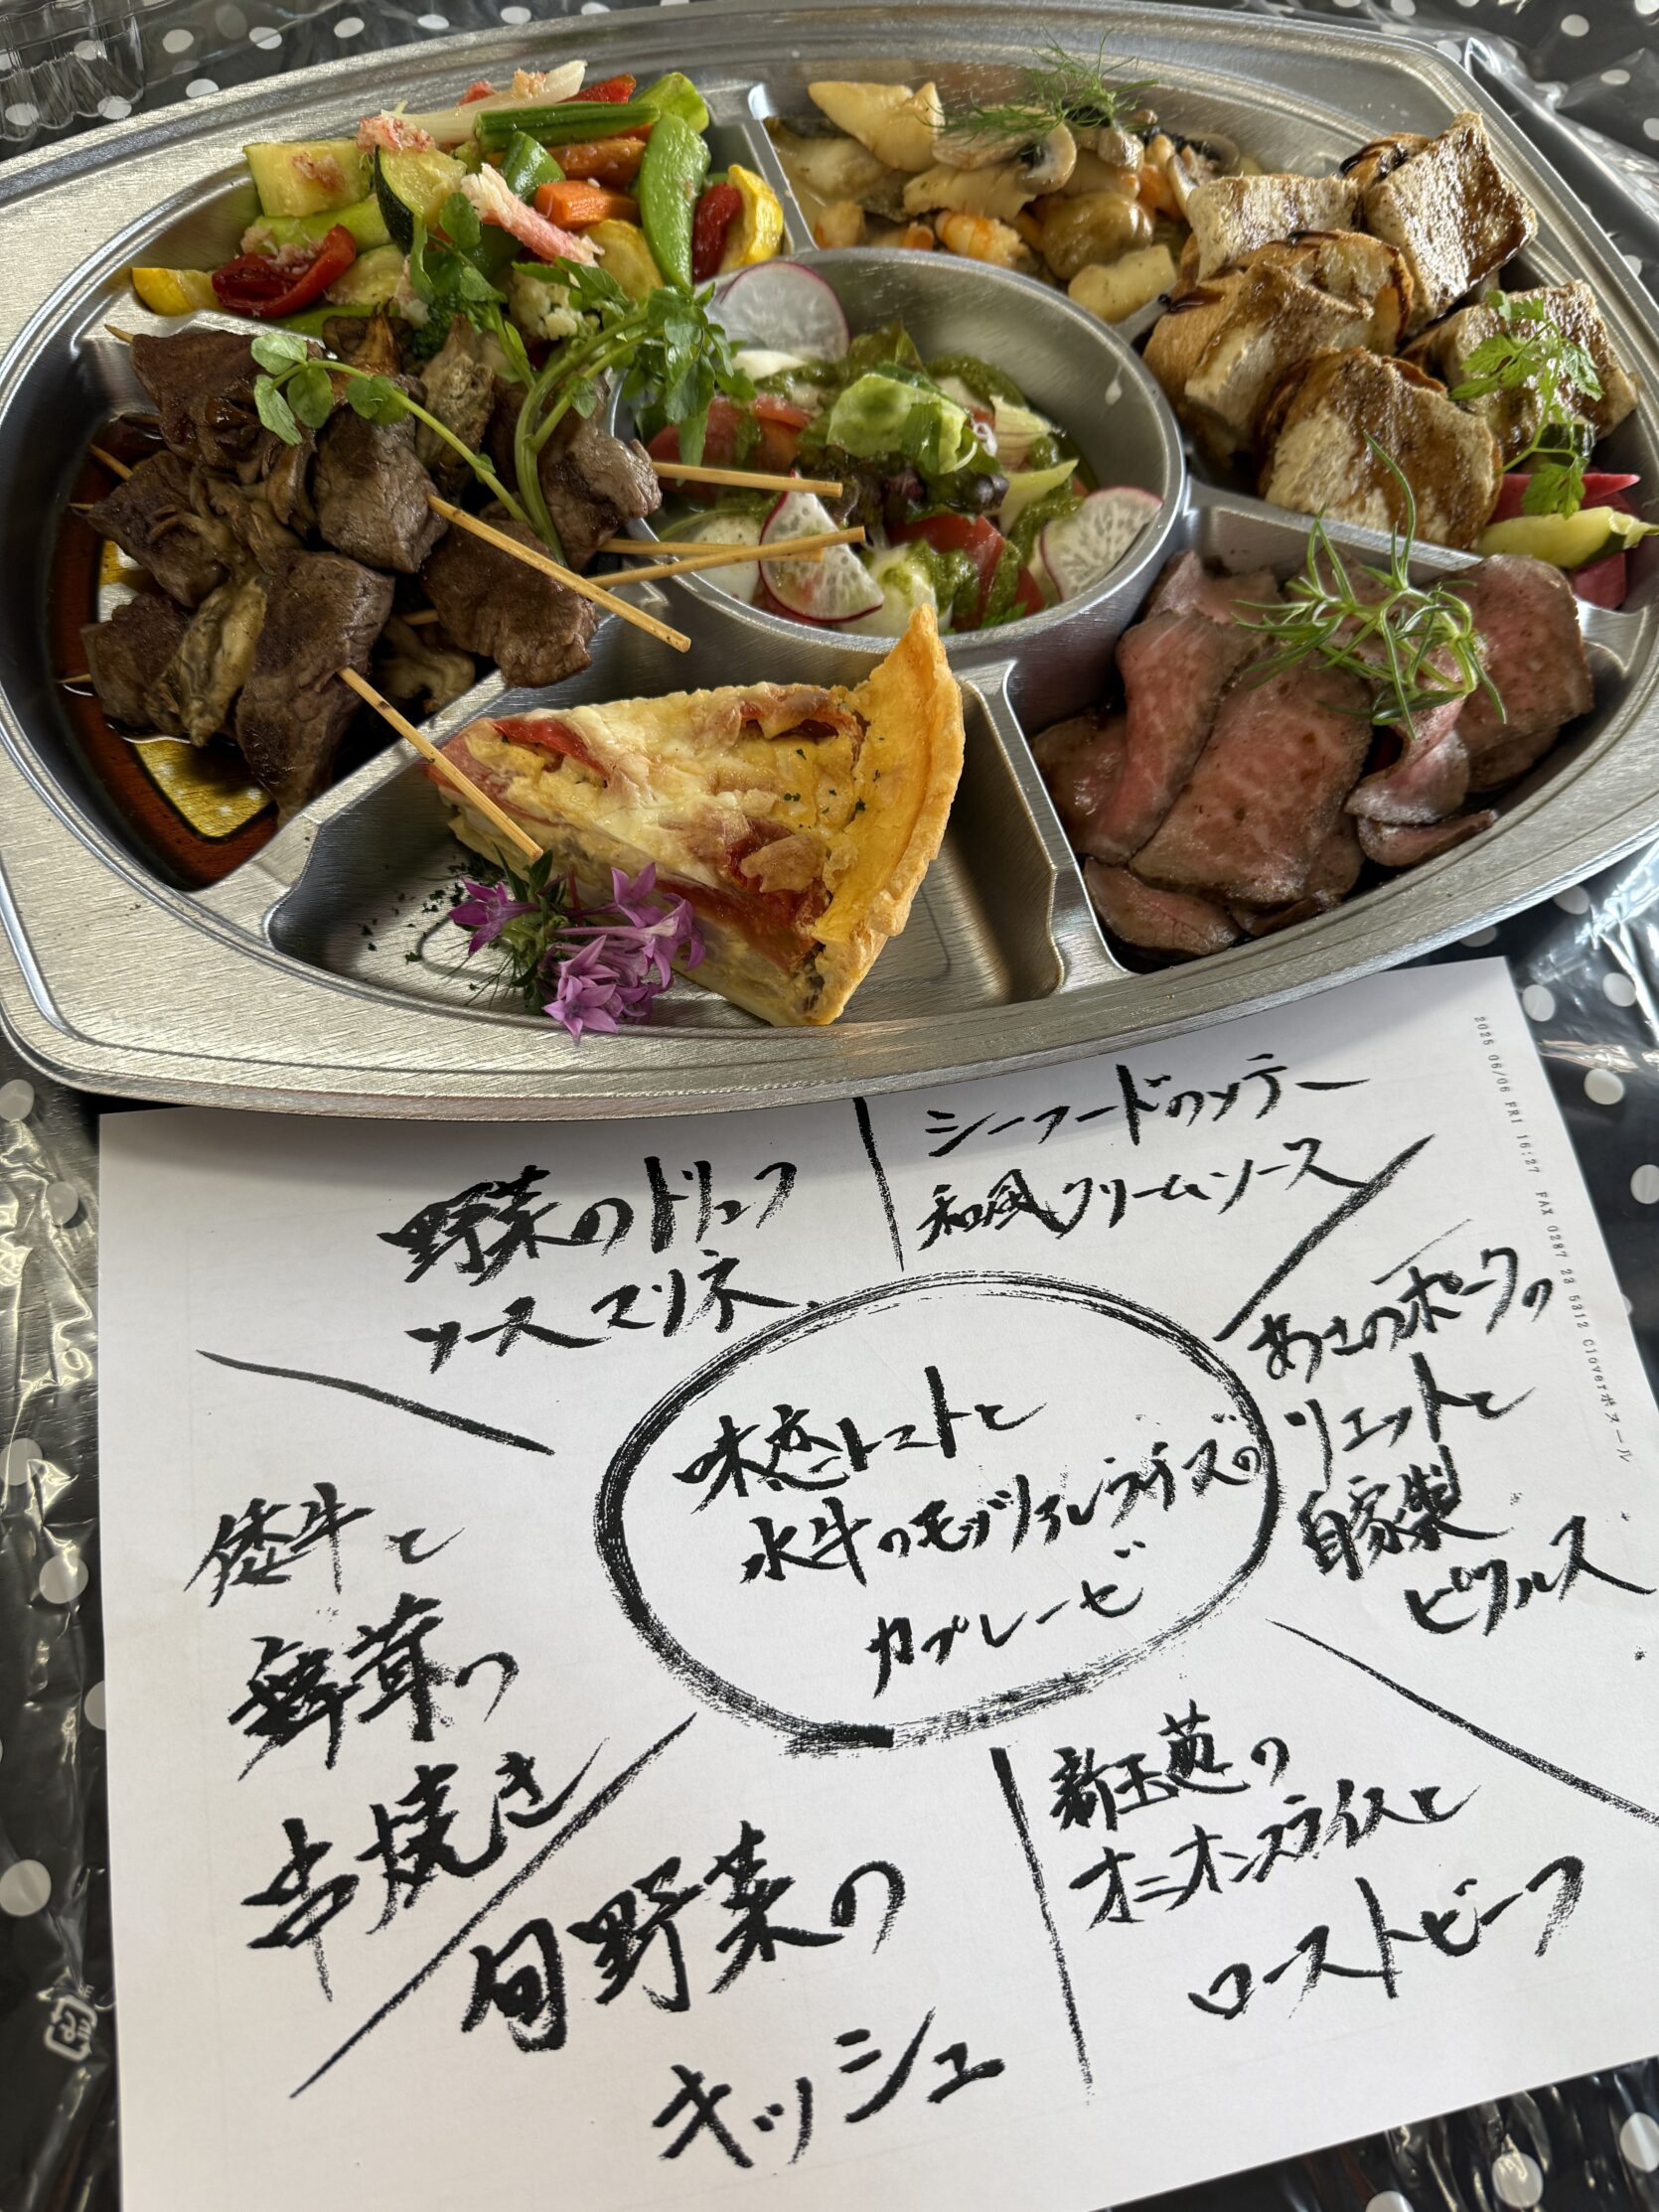 2025 06/06 FRI 16:27 FAX 0287 23 5312 Cloverボヌール
野菜のトリュフ
ソースマリネ
シーフードのソテー
和風クリームソース
あさのポークの
リエットと
自家製
ピクルス
味恋トマトと
水牛のモッツァレラチーズの
カプレーゼ
倭牛と
舞茸の
串焼き
旬野菜の
キッシュ
新玉葱の
オニオンスライスと
ローストビーフ
プラ